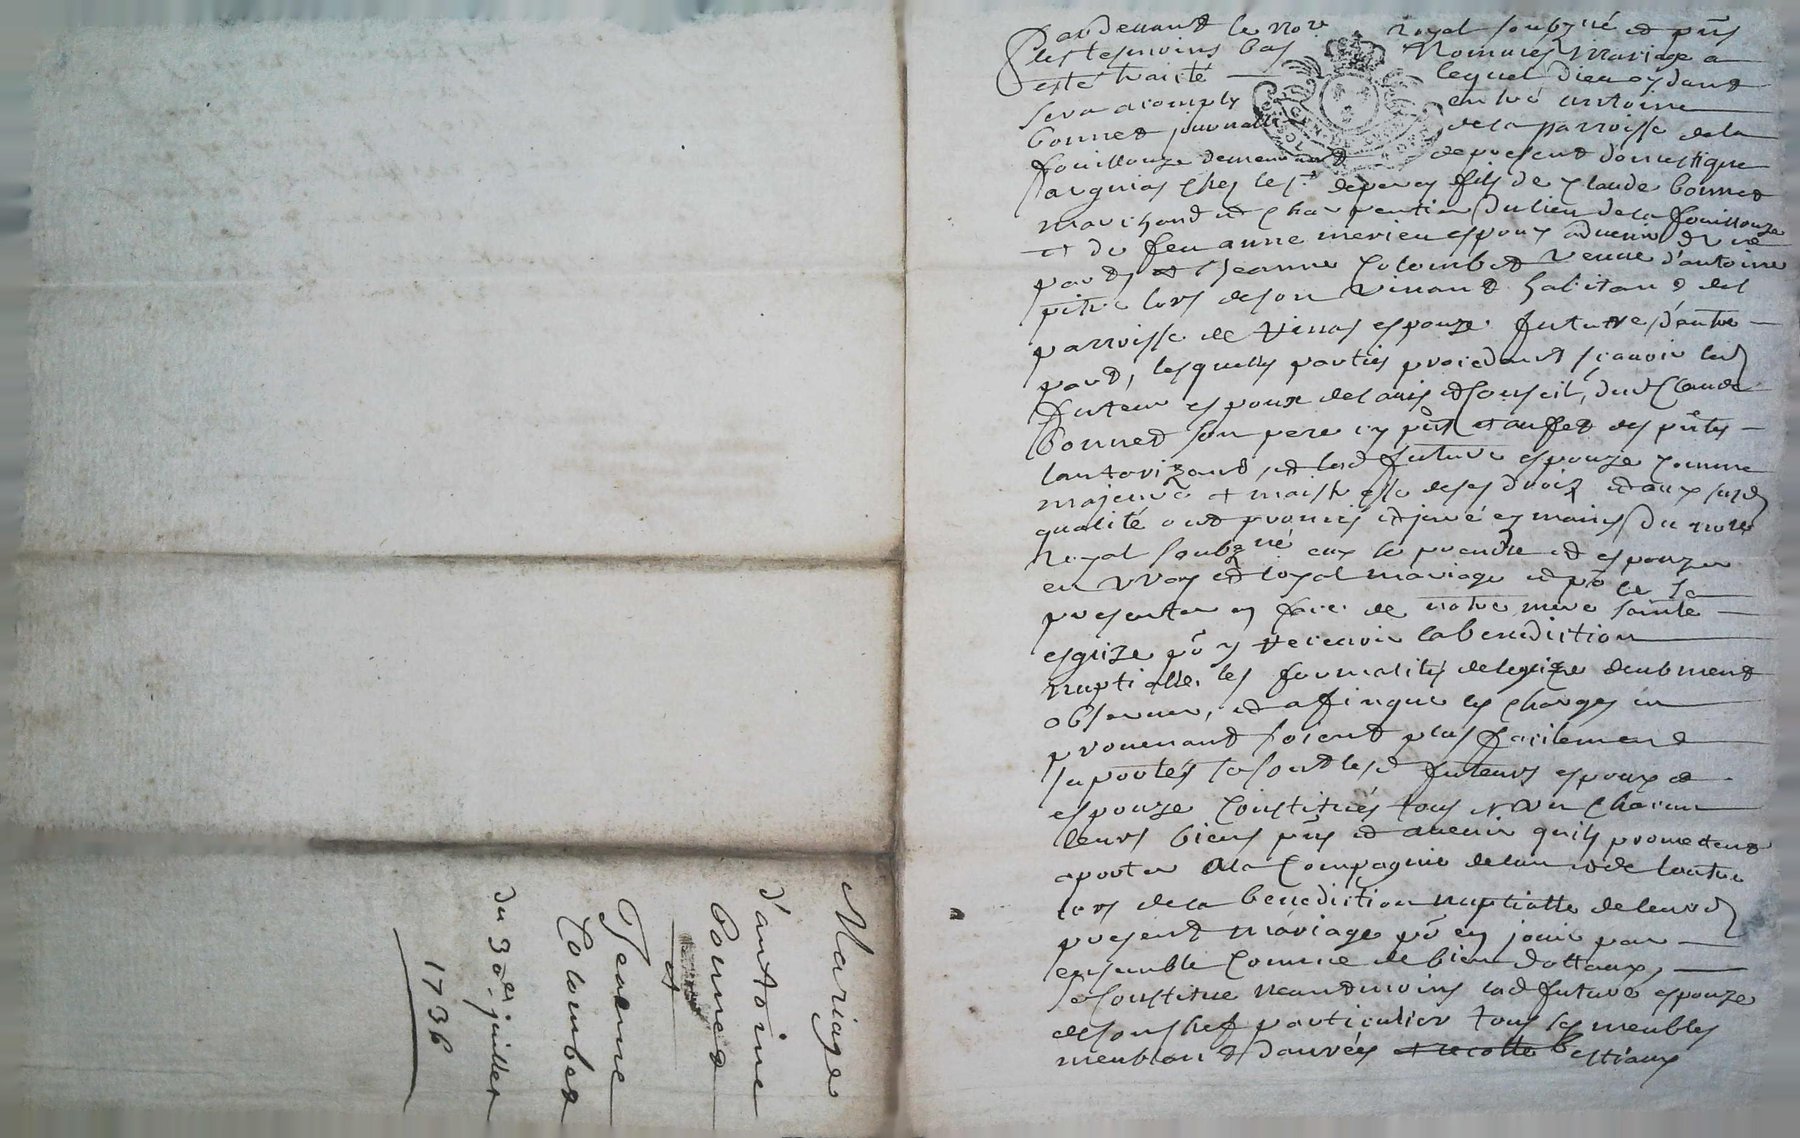 Mariage
d'antoine
Bonnet
et
Jeanne
Colombet
du 30er juillet
1736
Pardevant le nore royal soubzné et pñs
les tesmoins bas nommés mariage a
esté traité lequel dieu aydant
sera acomply entre antoine
bonnet journallier de la parroisse de la
fouillouze demeurant de present domestique
chez le sr fils de claude bonnet
marchand et charpentier du lieu de la fouillouze
et de feu anne merieu espoux advenir d'une
part, et Jeanne Colombet veuve d'antoine
pitre lors de son vivant habitant del
parroisse de espouze future d'autre
part, lesquelles parties procedant scavoir led
futeur espoux de l'avis et conseil, dud Claude
bonnet son pere icy pñt et auffet des pñtes
lautorizant, et lad future espouze comme
majeure et maistresse de ses droiz et aux susd
qualité ont promis et juré es mains du nore
royal soubzné eux se prendre et espouzer
en vray et loyal mariage et pō ce se
presenter en face de notre mere sainte
esglize pō y recevoir la benediction
nuptialle, les formalités de leglize deubment
observer, et affinque les charges en
provenant soient plus facilement
suportés se sont lesd futeurs espoux et
espouze constitués tous et un chacun
leurs biens pñs et avenir quils promettent
aporter a la compagnie de lun et de lautre
lors de la benediction nuptialle de leurd
present mariage pō en jouir par
ensemble comme de bien dottaux,
se constitue neantmoins lad future espouze
de son chef particulier tous ses meubles
meublant danrées et recolte bestiaux